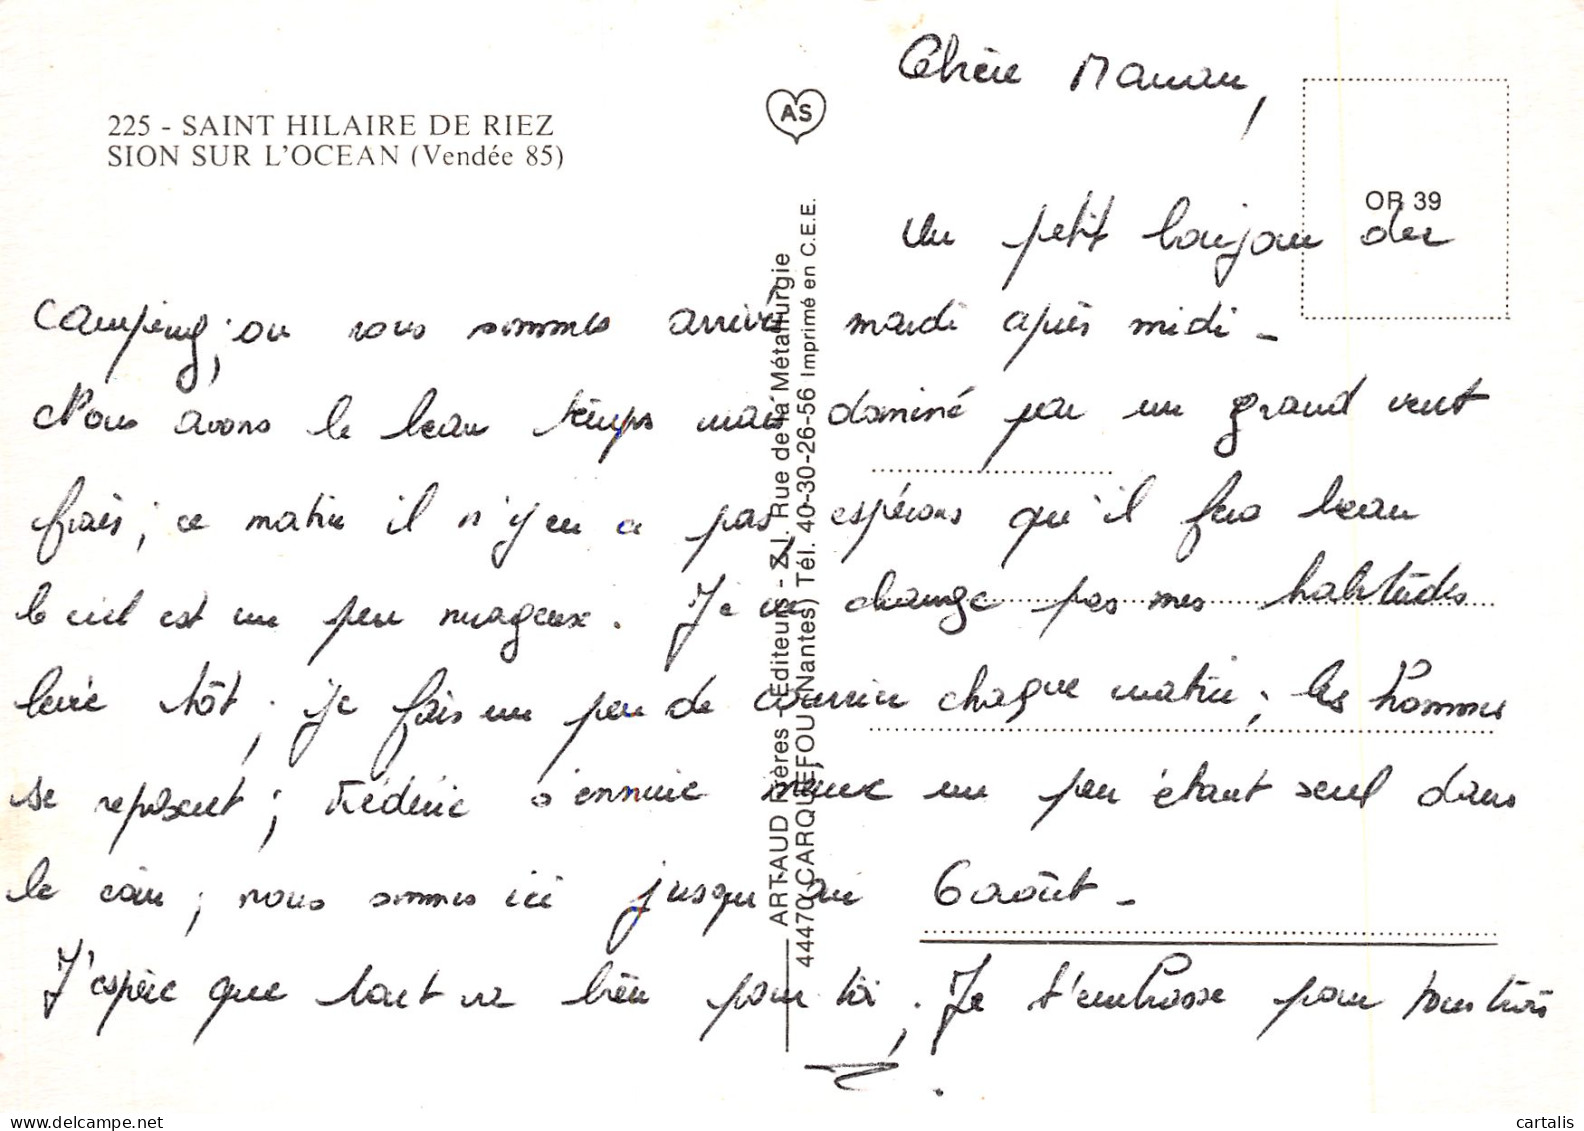 Chère Maman,
225 - SAINT HILAIRE DE RIEZ
SION SUR L'OCEAN (Vendée 85)
AS
OR 39
Un petit bonjour du
camping, où nous sommes arrivés mardi après midi -
Nous avons le beau temps mais dominé par un grand vent
frais, ce matin il n'y en a pas, espérons qu'il fera beau
le ciel est un peu nuageux. Je ne change pas mes habitudes
levée tôt, je fais un peu de courrier chaque matin, les hommes
se reposent, Frédéric s'ennuie même un peu étant seul dans
le coin, nous sommes ici jusqu'au 6 août -
J'espère que tout va bien pour toi, Je t'embrasse pour tous trois
ARTAUD Frères - Editeur - Z.I. Rue de la Métallurgie
44470 CARQUEFOU (Nantes) Tél. 40-30-26-56 Imprimé en C.E.E.
www.delcampe.net
cartalis